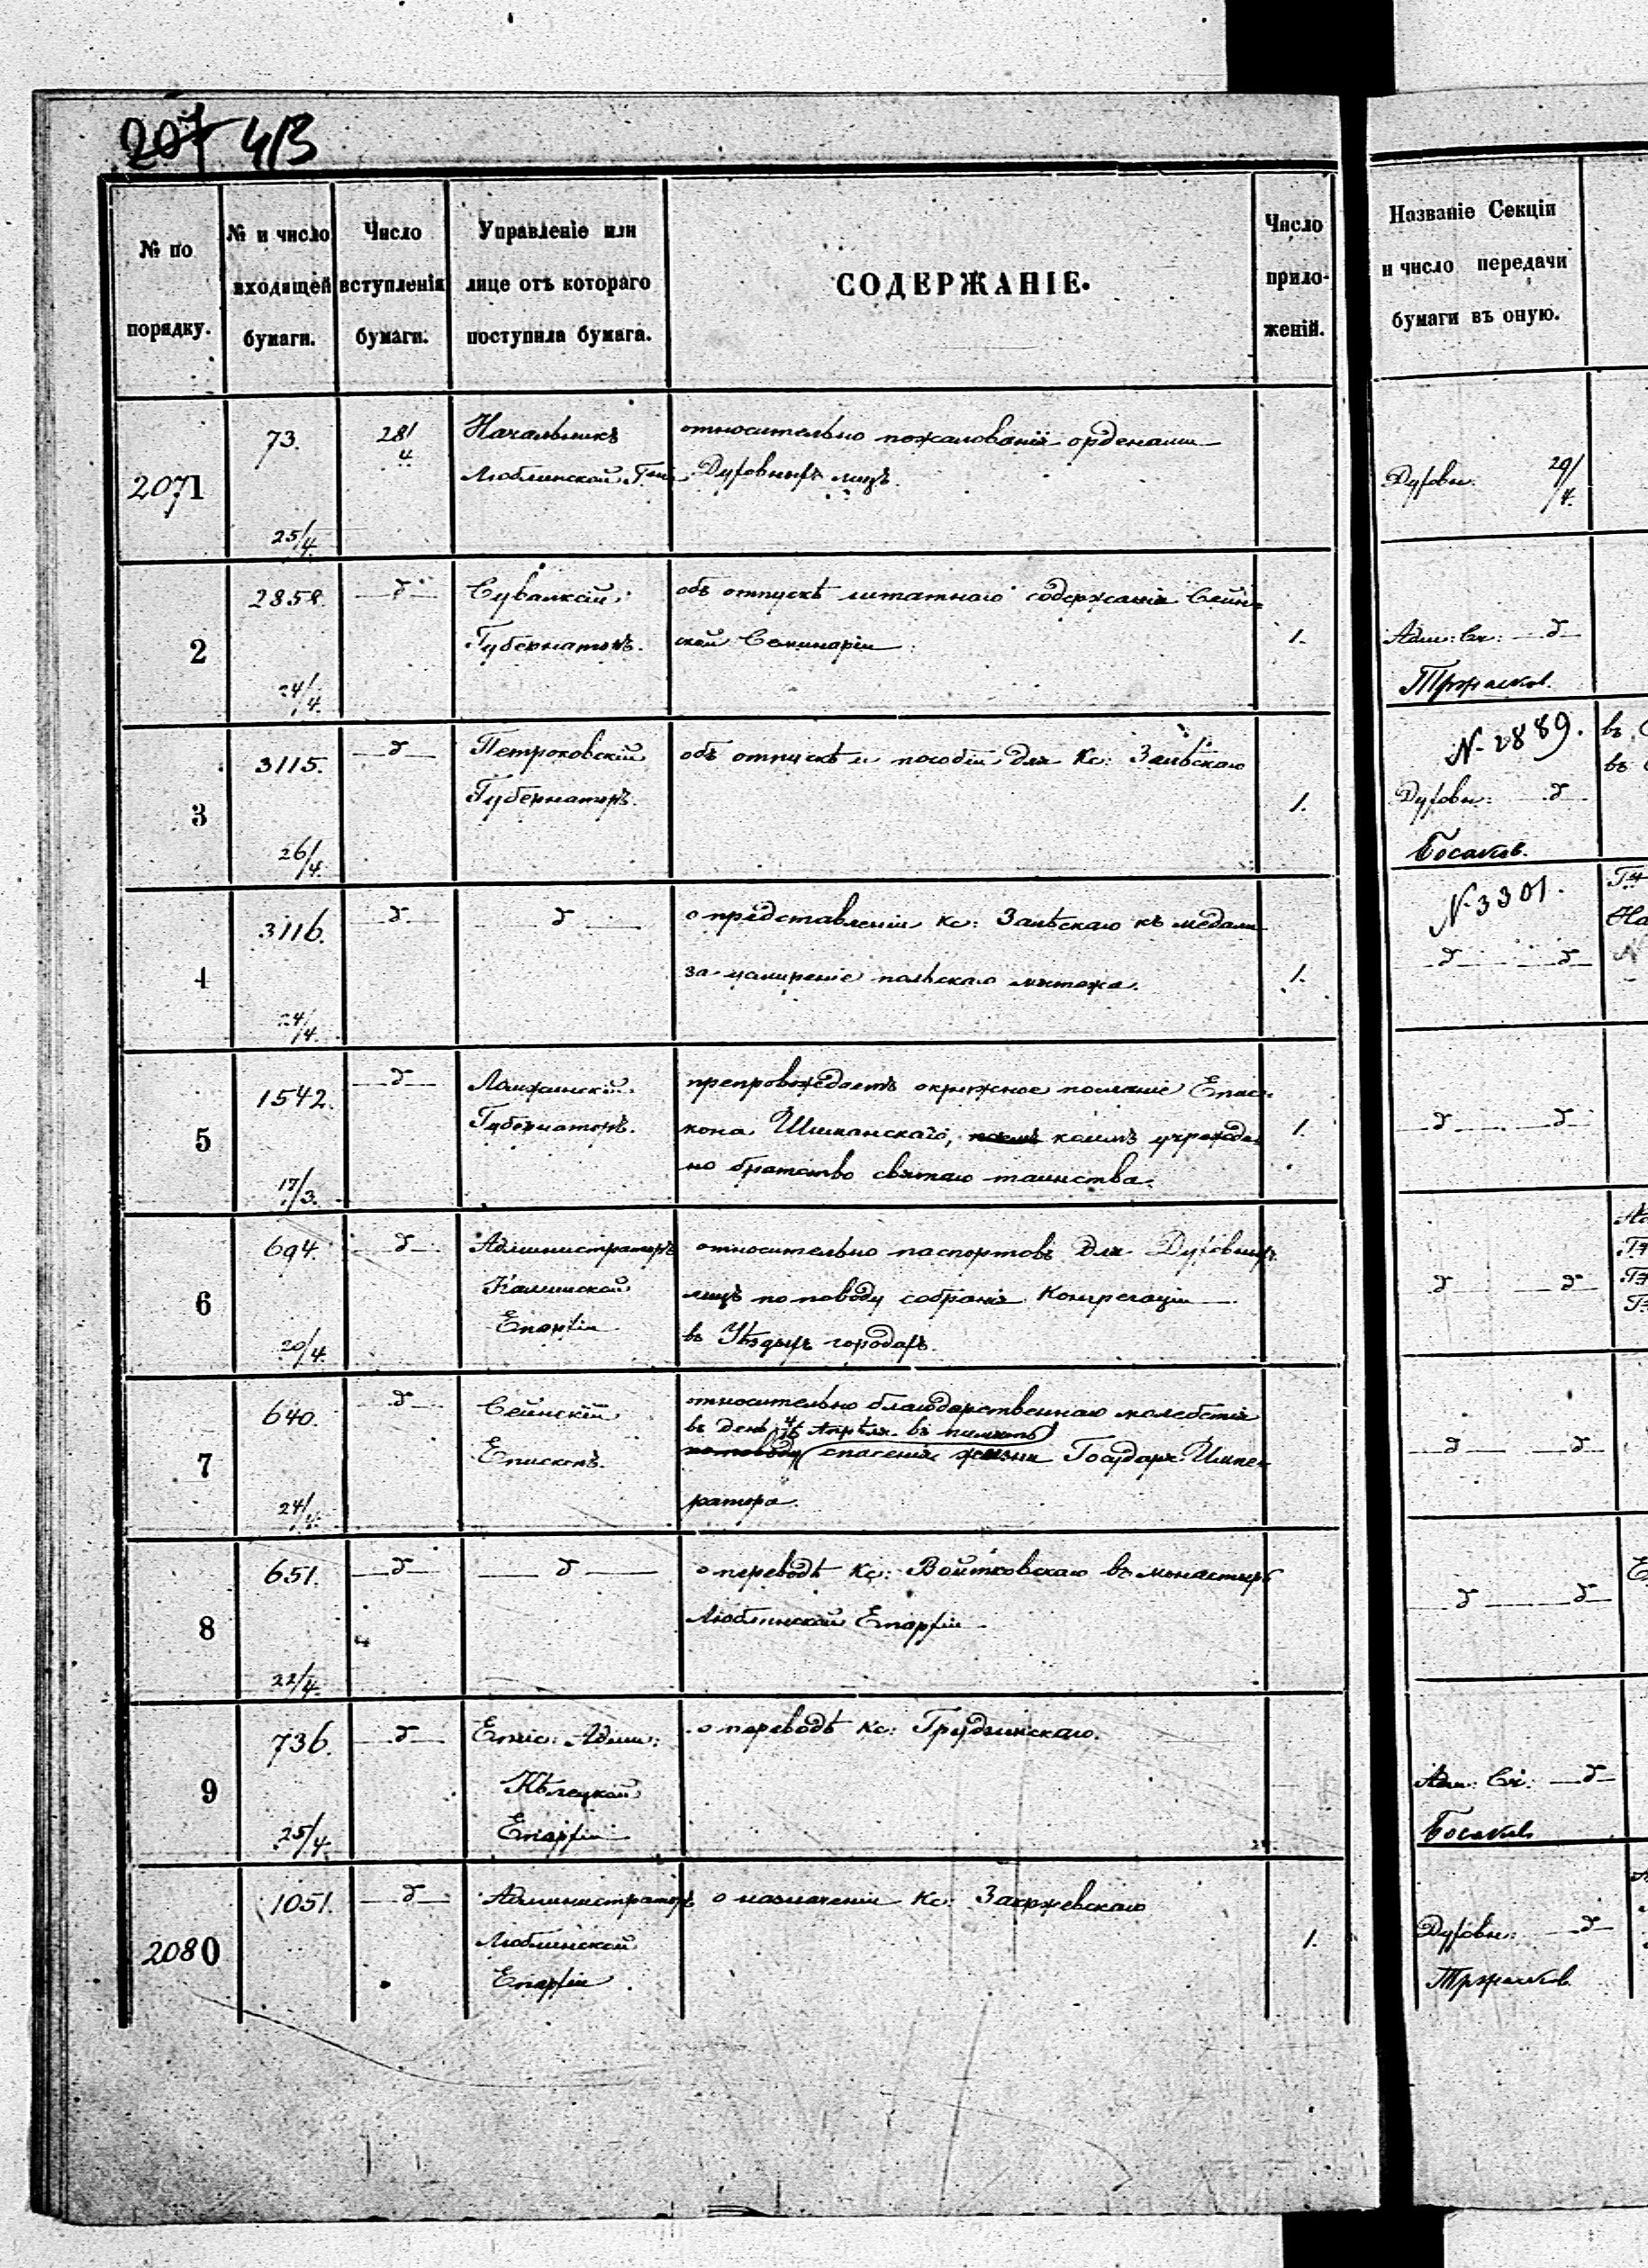 207 413
№ по порядку.
№ и число входящей бумаги.
Число вступленія бумаги.
Управленіе или лице отъ котораго поступила бумага.
СОДЕРЖАНІЕ.
Число приложеній.
Названіе Секціи и число передачи бумаги въ оную.
2071
73.
25/4.
28/4
Начальникъ
Люблинской
относительно пожалованія орденами
Духовныхъ лицъ.
Духовн. 29/4.
2
2858.
24/4.
—д—
Сувалкскій
Губернаторъ.
объ отпускѣ штатнаго содержанія Сейн=
ской Семинаріи
1.
Адм: Сч: —д—
3
3115.
26/4.
—д—
Петроковскій
Губернаторъ.
объ отпускѣ пособія для Кс: Залѣскаго
1.
N. 2889.
Духовн: —д—
въ
въ
4
3116.
24/4.
—д—
—д—
о представленіи Кс: Залѣскаго къ медали
за усмиреніе польскаго мятежа.
1.
N. 3301.
—д— —д—
5
1542.
17/3.
—д—
Ломжинскій
Губернаторъ.
препровождаетъ окружное посланіе Епис=
копа коимъ учрежде=
но братство святаго таинства.
1.
—д— —д—
6
694.
20/4.
—д—
Администраторъ
Калишской
Епархіи
относительно паспортовъ для Духовныхъ
лицъ по поводу собранія Конгрегаціи
въ городахъ.
—д— —д—
7
640.
24/4.
—д—
Сейнскій
Епископъ.
относительно благодарственнаго молебствія
въ день 4/16 Апрѣля въ память
по поводу спасенія жизни Государя Импе=
ратора.
—д— —д—
8
651.
22/4.
—д—
—д—
о переводѣ Кс: Войтковскаго въ монастырь
Люблинской Епархіи
—д— —д—
9
736.
25/4.
—д—
Епис: Адми:
Кѣлецкой
Епархіи
о переводѣ Кс: Грудзинскаго.
Адм: Сч: —д—
2080
1051.
—д—
Администраторъ
Люблинской
Епархіи
о назначеніи Кс: Закржевскаго
1.
Духовн: —д—